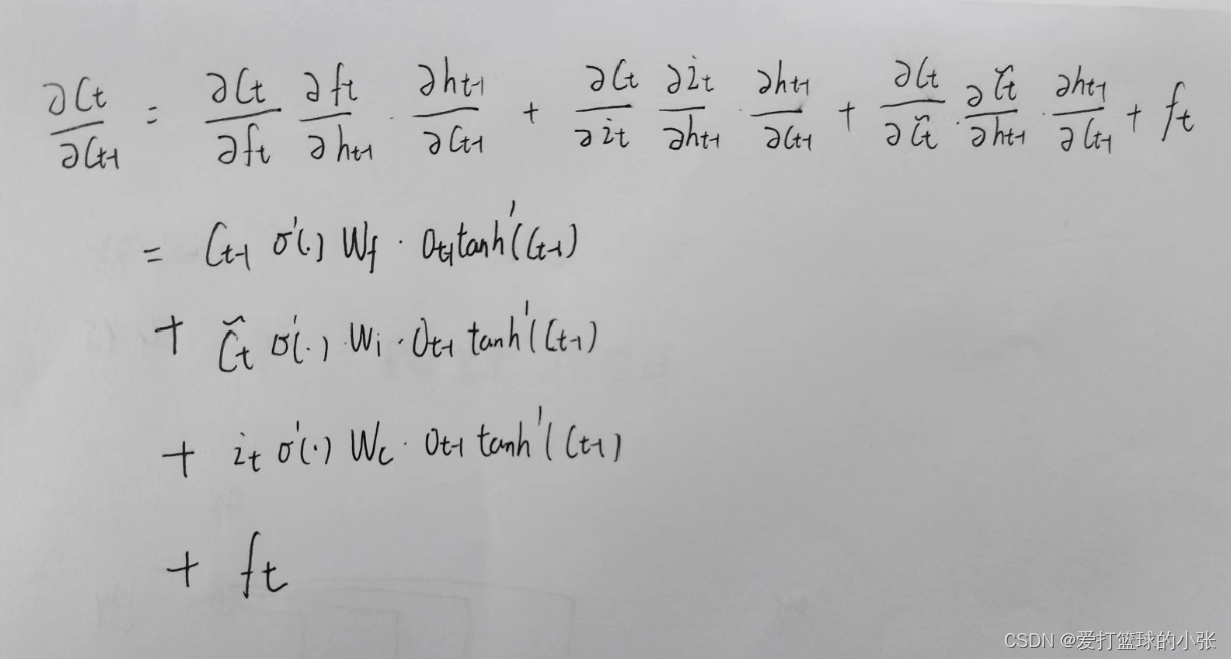 ∂Ct/∂Ct-1 = ∂Ct/∂ft ∂ft/∂ht-1 · ∂ht-1/∂Ct-1 + ∂Ct/∂it ∂it/∂ht-1 · ∂ht-1/∂Ct-1 + ∂Ct/∂C̃t · ∂C̃t/∂ht-1 · ∂ht-1/∂Ct-1 + ft
= Ct-1 σ'(·) Wf · Ot-1 tanh'(Ct-1)
+ C̃t σ'(·) Wi · Ot-1 tanh'(Ct-1)
+ it σ'(·) Wc · Ot-1 tanh'(Ct-1)
+ ft
CSDN @爱打篮球的小张